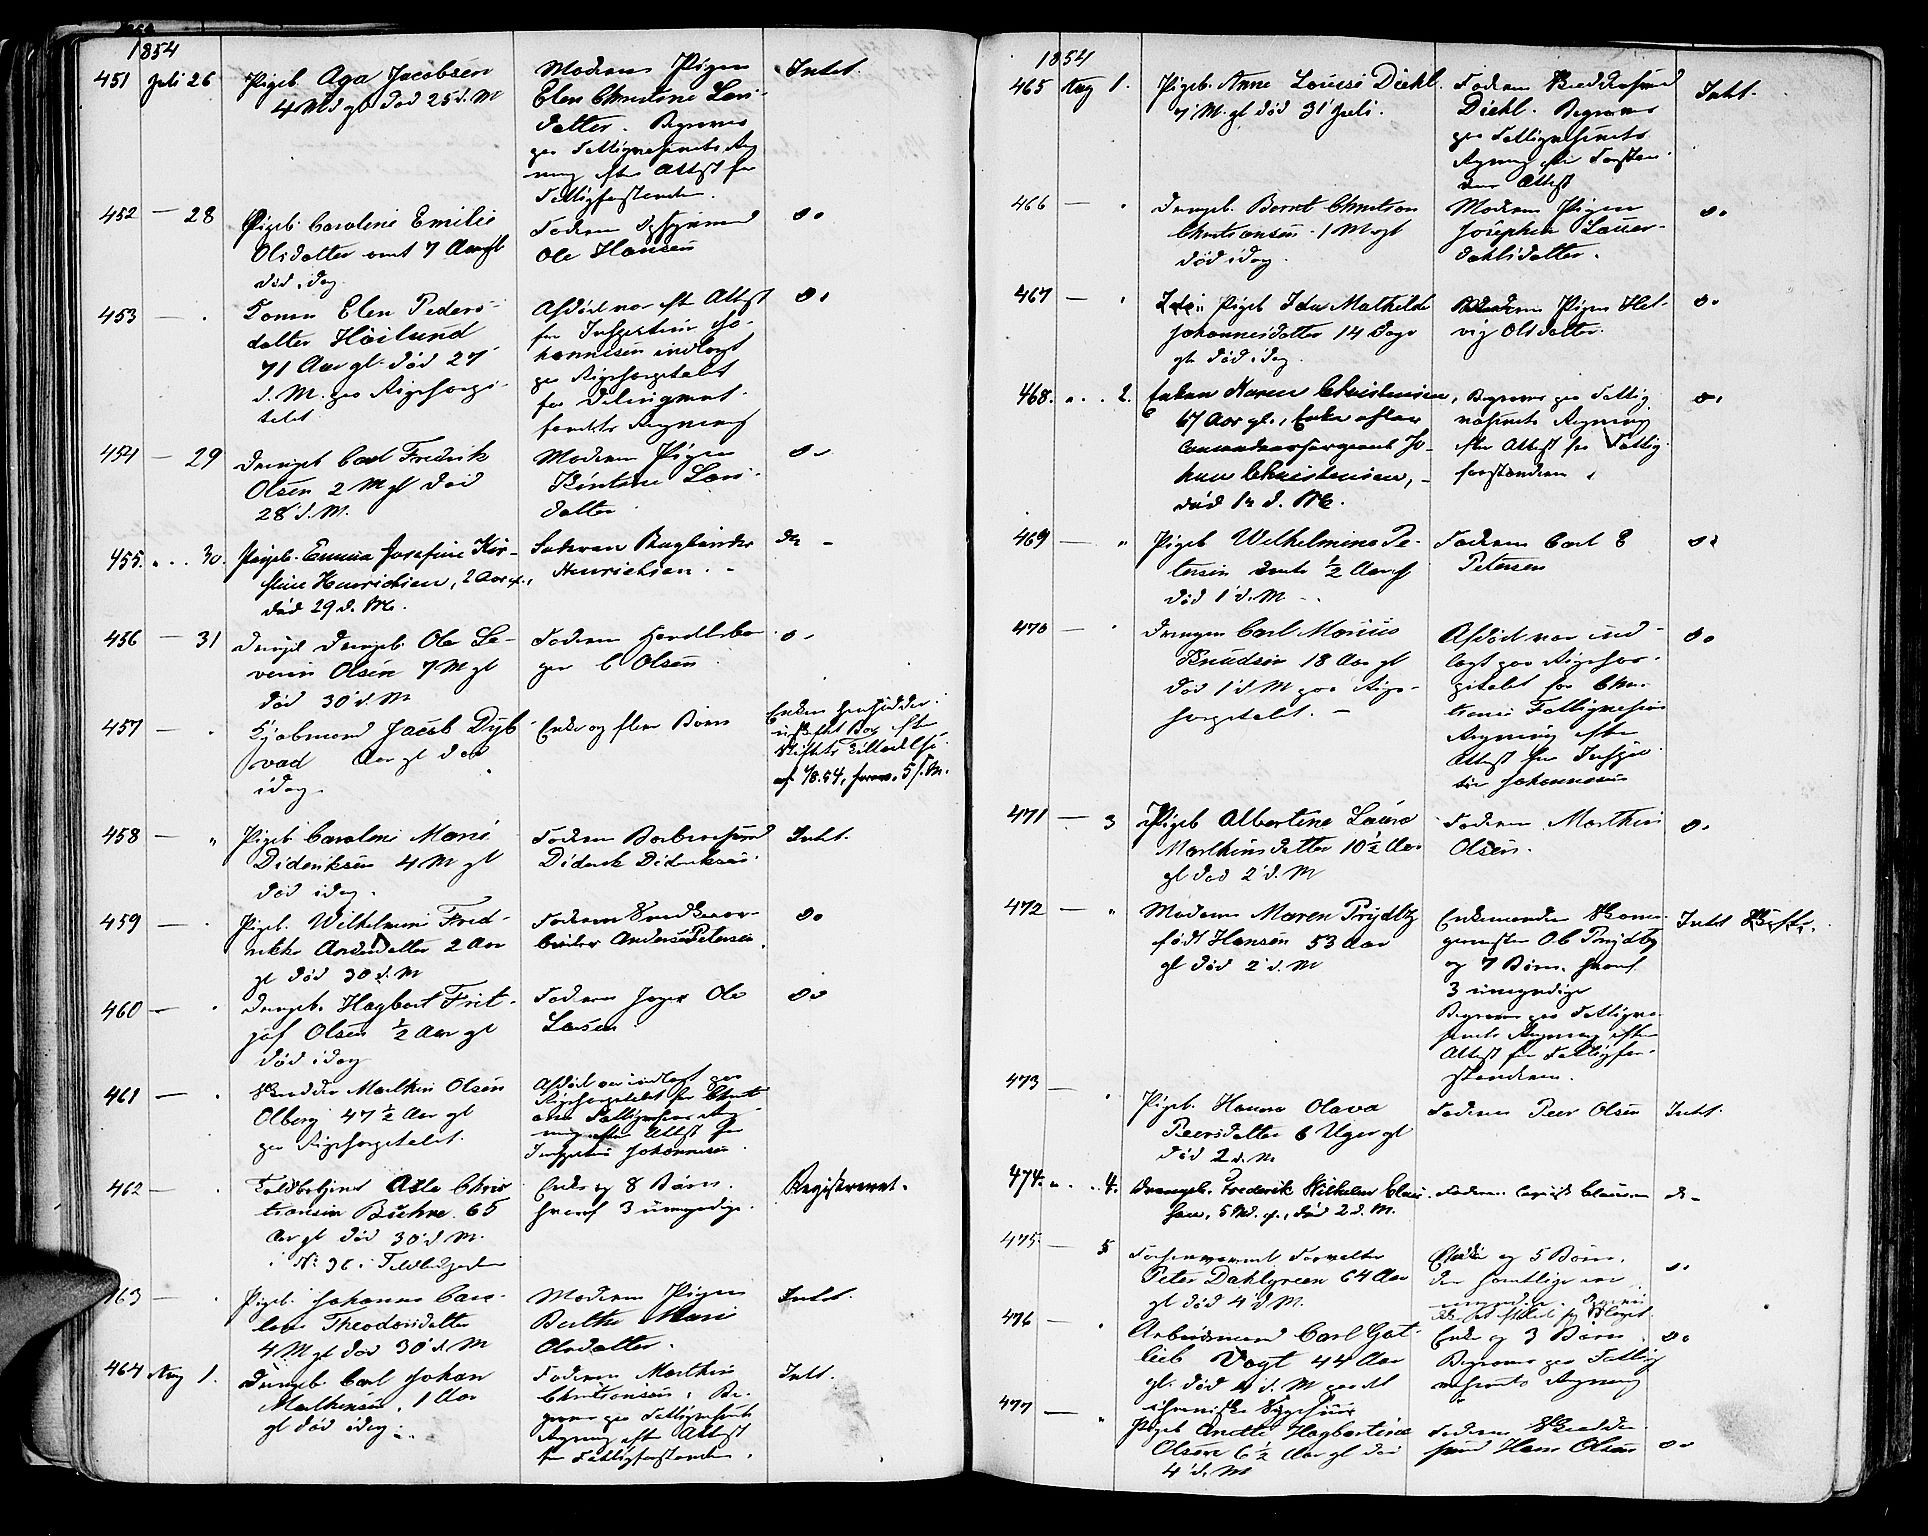 1854
451 Juli 26 Pigeb. Aga Jacobsen
4 Md gl død 25 d. M
Moderen Pigen
Elen Christine Lars-
datter. Begraves
paa Fattigvæsenets Reg
ning efter Attest fra
Fattigforstanderen.
Intet.
452 — 28 Pigeb. Caroline Emilie
Olsdatter omt 7 Aar gl
død idag
Faderen
Ole Hansen
do
453 — Konen Elen Peders-
datter Höilund
71 Aar gl. død 27
d. M. paa Rigshospi-
talet
Afdød var efter Attest
fra Inspecteur Jo-
hannesen indlagt
paa Rigshospitalet
for
Regning
do
454 — 29 Drengeb Carl Fredrik
Olsen 2 M gl død
28 d. M.
Moderen Pigen
Lars-
datter
do
455. " . . 30. Pigeb. Emma Josefine Kir-
stine Henrichsen, 2 Aar g.,
død 29 d. M.
Henrichsen. -
do -
456 — 31 Drengeb. Ole Se-
verin Olsen 7 M gl
død 30 d. M
Faderen Handelsbor
ger C Olsen
do
457 — Kjøbmand Jacob Dyb-
vad Aar gl død
idag.
Enke og flere Børn
Enken hensidder
i uskiftet Bo efter
458 — " Pigeb. Caroline Marie
Dideriksen 4 M gl
død idag.
Faderen
Diderik Dideriksen.
Intet.
459 — Pigeb. Wilhelmine Fred-
rikke Andersdatter 2 Aar
gl død 30 d. M
Faderen
Anders Petersen
do
460 — Drengeb. Hagbart Frit-
jof Olsen ½ Aar gl
død idag
Faderen Ole
Larsen
do
461 — Skrædder Marthin Olsen
Olberg 47 ½ Aar gl
paa Rigshospitalet.
Afdød var indlagt paa
Rigshospitalet for Christi
ania Fattigvæsens Reg
ning efter Attest fra
Inspecteur Johannesen
462 — Asle Chris
tiansen Buhre 65
Aar gl død 30 d M.
Enke og 8 Børn.
hvoraf 3 umyndige.
Registreret.
463 — Pigeb. Johanne Caro-
line Theodorsdatter
4 M gl død 30 d M
Moderen Pigen
Berthe Marie
Olsdatter.
Intet.
464 Aug 1. Drengeb. Carl Johan
Mathiesen, 1 Aar
gl død idag.
Faderen Marthin
Christiansen. Be-
graves paa Fattigvæsenets
Regning efter Attest
fra Fattigforstanderen.
Intet.
1854
465 Aug 1. Pigeb. Anne Lovise Diehl.
7 M. gl død 31 Juli.
Faderen
Diehl. Begraves
paa Fattigvæsenets
Regning efter Forstan-
ders Attest
Intet.
466 — " Drengeb. Bernt Christian
Christiansen 1 M gl
død idag.
Moderen Pigen
Josephine Lauer-
dahlsdatter.
do
467 — " Pigeb Ida Mathilde
Johannesdatter 14 Dage
gl. død idag.
Moderen Pigen Hel-
vig Olsdatter.
do
468. " . . 2. Enken Maren Christensen,
67 Aar gl., Enke efter
Jo-
han Christensen,
død 1 d. M.
Begraves paa Fattig
væsenets Regning
efter Attest fra Fattig-
forstanderen.
do
469 — " Pigeb Wilhelmine Pe-
tersen omtr ½ Aar gl
død 1 d. M
Faderen Carl E
Petersen
do
470 — " Drengen Carl Marius
Knudsen 18 Aar gl
død 1 d M paa Rigs-
hospitalet. —
Afdød var ind-
lagt paa Rigshos-
pitalet for Chri-
tiania Fattigvæsens
Regning efter
Attest fra Inspec-
teur Johannesen
do
471 — 3 Pigeb Albertine Laura
Marthinsdatter 10½ Aar
gl død 2 d. M
Faderen Marthin
Olsen.
do
472 — " Madame Maren Prydtz
født Hansen 53 Aar
gl død 2 d. M
Enkemanden
O C Prydtz
og 7 Børn. hvoraf
3 umyndige
Begraves paa Fattigvæ-
senets Regning efter
Attest fra Fattigfor-
standeren.
Intet
473 — Pigeb. Hanna Olava
Peersdatter 6 Uger gl
død 2 d. M
Faderen Peer Olsen
Intet.
474. " . . 4. Drengeb. Frederik Wilhelm Clau-
sen, 5 Md. g., død 2 d. M.
Faderen Clausen
do
475 — 5
Peter Dahlgreen 64 Aar
gl død 4 d M.
Enke og 5 Børn.
der samtlige ere
do
476 — Arbeidsmand Carl Got-
lieb Vogt 44 Aar
gl. død 4 d. M paa det
Sygehuus
Enke og 3 Børn
Begraves paa Fattig
væsenets Regning
do
477 — " Pigeb Anette Hagbartine
Olsen 6½ Aar gl død
4 d. M
Faderen Skrædder
svend Hans Olsen
do